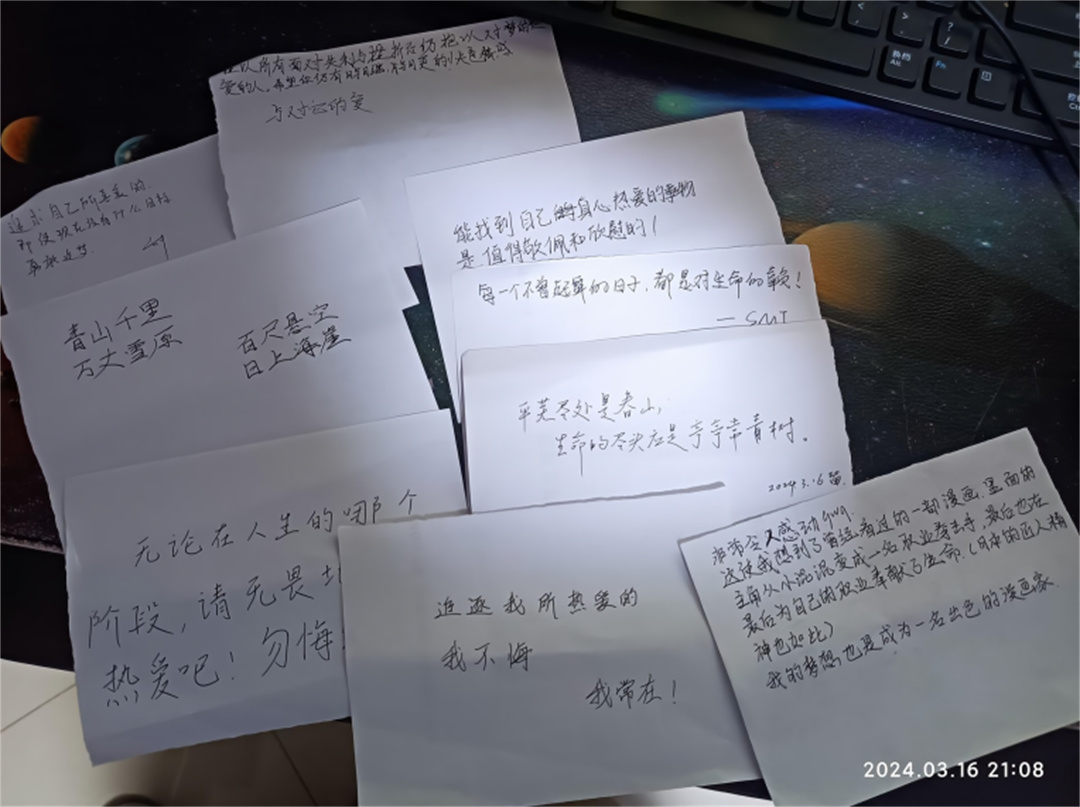 所有面对失利与挫折后仍抱以对梦的
爱的人，希望你仍有
与对它的爱
追求自己所喜爱的
即使现在没有什么目标
能找到自己身心热爱的事物
是值得敬佩和欣慰的！
每一个不曾起舞的日子，都是对生命的辜负！
— SMT
青山千里
万丈雪原
百尺悬空
日上海崖
平芜尽处是春山，
生命的尽头应是亭亭常青树。
2024.3.16
无论在人生的哪个
阶段，请无畏地
热爱吧！勿悔
追逐我所热爱的
我不悔
我常在！
感动
这使我想到了曾经看过的一部漫画，里面的
主角从小混混变成一名职业拳击手，最后也在
最后为自己的职业奉献了生命（日本的匠人精
神也如此）
我的梦想也是成为一名出色的漫画家
换档
Alt
Fn
2024.03.16 21:08